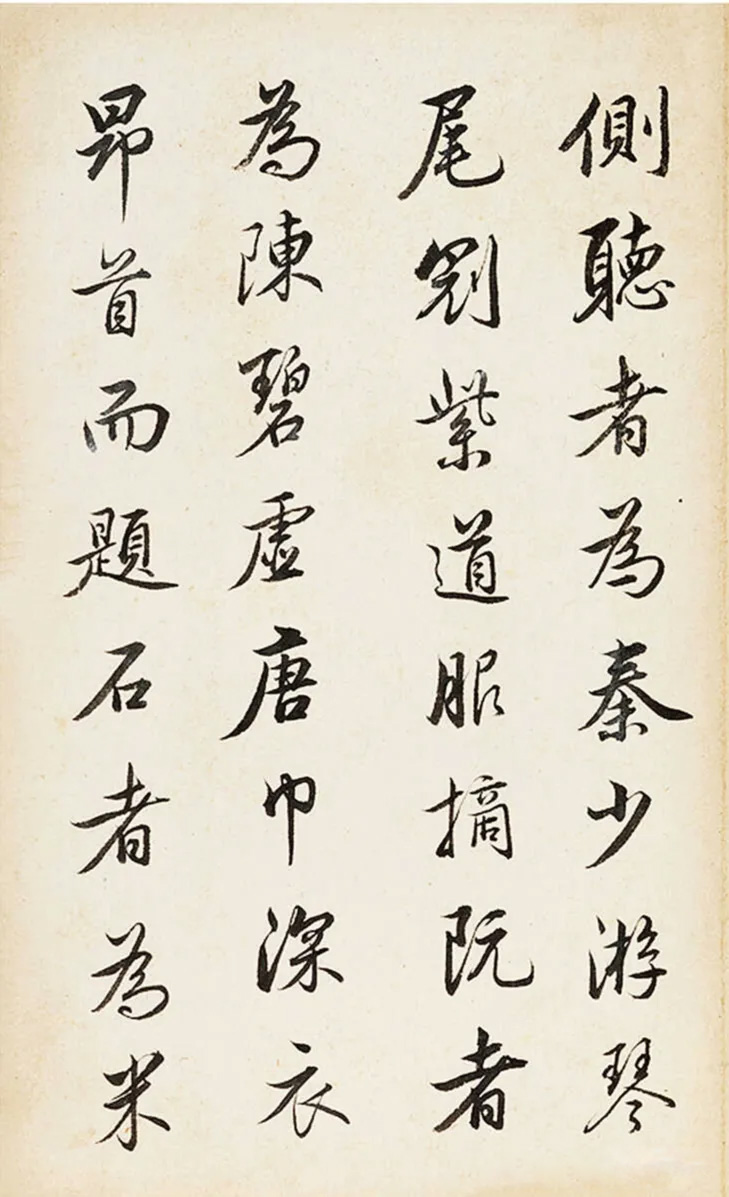 側聽者為秦少游琴
尾劉紫道服摘阮者
為陳碧虛唐巾深衣
昂首而題石者為米